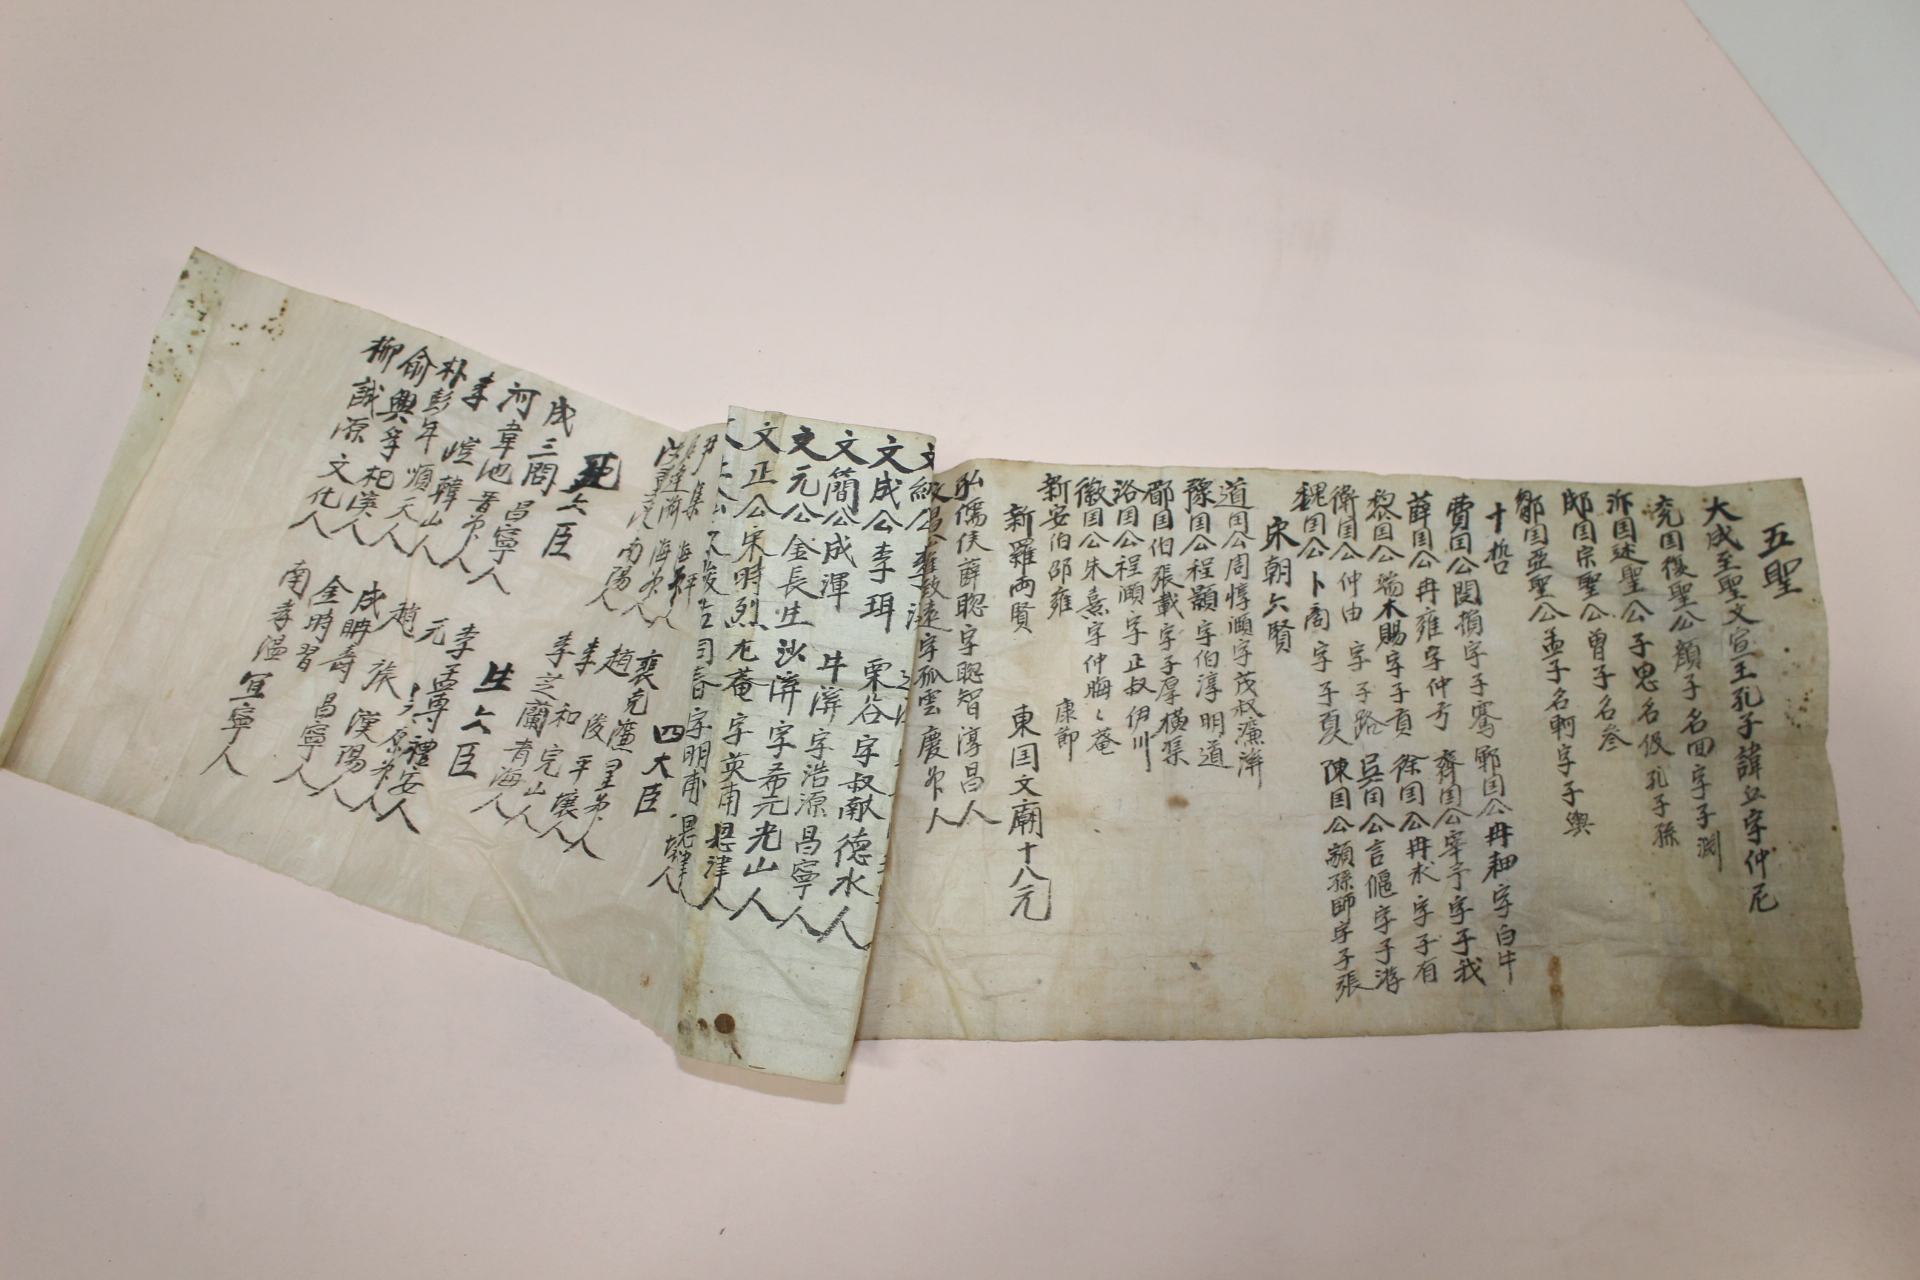 五聖
大成至聖文宣王孔子諱丘字仲尼
兗囯復聖公顔子名回字子淵
沂囯述聖公子思名伋孔子孫
郕囯宗聖公曾子名參
鄒囯亞聖公孟子名軻字子輿
十哲
費囯公閔損字子騫 鄆囯公冉耕字白牛
薛囯公冉雍字仲弓 齊囯公宰予字子我
黎囯公端木賜字子貢 徐囯公冉求字子有
衛囯公仲由字子路 吳囯公言偃字子游
魏囯公卜商字子夏 陳囯公顓孫師字子張
宋朝六賢
道囯公周惇頤字茂叔濂溪
豫囯公程顥字伯淳明道
郿囯伯張載字子厚横渠
洛囯公程頤字正叔伊川
徽囯公朱熹字仲晦晦菴
新安伯邵雍 康節
新羅兩賢 東国文廟十八元
弘儒侯薛聰字聰智淳昌人
文昌公崔致遠字孤雲慶州人
文成公李珥 栗谷字叔献德水人
文簡公成渾 牛溪字浩源昌寧人
文元公金長生沙溪字希元光山人
文正公宋時烈尤菴字英甫恩津人
同春字明甫恩津人
尹集 南陽人
海平人
海州人
四大臣
裵克廉星州人
趙浚平壤人
李和完山人
李芝蘭青海人
死六臣
成三問昌寧人
河韋地晉州人
李塏韓山人
朴彭年順天人
俞興孚杞溪人
柳誠源文化人
生六臣
李孟專禮安人
元昊原州人
趙旅漢陽人
成聃壽昌寧人
金時習
南孝溫宜寧人